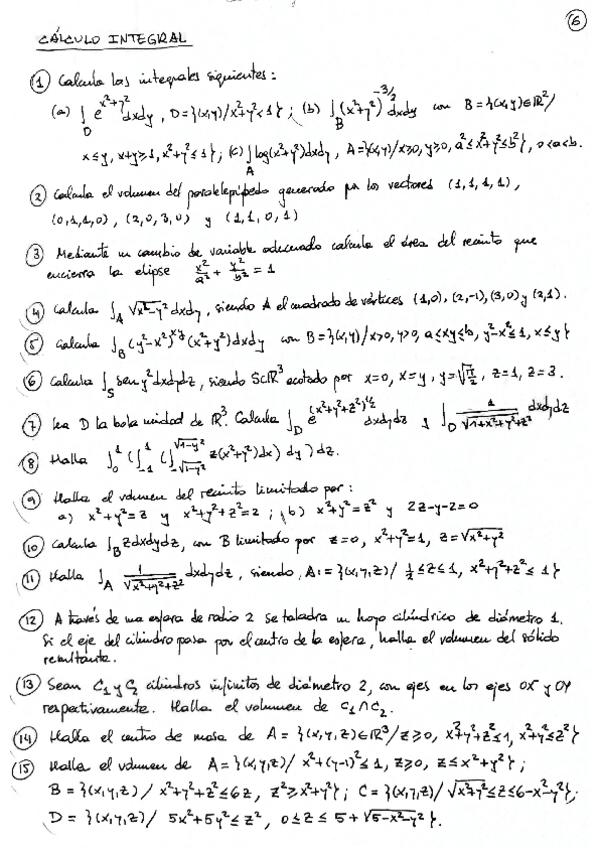 6
CÁLCULO INTEGRAL
① Calcula las integrales siguientes:
(a) ∫_D e^{x²+y²} dxdy, D={(x,y)/x²+y²<1}; (b) ∫_B (x²+y²)^{-3/2} dxdy con B={(x,y)∈ℝ²/
x≤y, x+y≥1, x²+y²≤1}; (c) ∫_A log(x²+y²)dxdy, A={(x,y)/x≥0, y≥0, a²≤x²+y²≤b²}, 0<a<b.
② Calcula el volumen del paralelepípedo generado por los vectores (1,1,1,1),
(0,1,1,0), (2,0,3,0) y (1,1,0,1)
③ Mediante un cambio de variable adecuado calcula el área del recinto que
encierra la elipse x²/a² + y²/b² = 1
④ Calcula ∫_A √(x²-y²) dxdy, siendo A el cuadrado de vértices (1,0), (2,-1), (3,0) y (2,1).
⑤ Calcula ∫_B (y²-x²)^{xy} (x²+y²)dxdy con B={(x,y)/x>0, y>0, a≤xy≤b, y²-x²≤1, x≤y}
⑥ Calcula ∫_S sen y² dxdydz, siendo S⊂ℝ³ acotado por x=0, x=y, y=√(π/2), z=1, z=3.
⑦ Sea D la bola unidad de ℝ³. Calcula ∫_D e^{(x²+y²+z²)^{1/2}} dxdydz y ∫_D 1/√(1+x²+y²+z²) dxdydz
⑧ Halla ∫_0^1 (∫_{-1}^1 (∫_{-√(1-y²)}^{√(1-y²)} z(x²+y²)dx) dy) dz.
⑨ Halla el volumen del recinto limitado por:
a) x²+y²=z y x²+y²+z²=2; b) x²+y²=z² y 2z-y-2=0
⑩ Calcula ∫_B z dxdydz, con B limitado por z=0, x²+y²=1, z=√(x²+y²)
⑪ Halla ∫_A 1/√(x²+y²+z²) dxdydz, siendo A:={(x,y,z)/ 1/2≤z≤1, x²+y²+z²≤1}
⑫ A través de una esfera de radio 2 se taladra un hoyo cilíndrico de diámetro 1.
Si el eje del cilindro pasa por el centro de la esfera, halla el volumen del sólido
resultante.
⑬ Sean C₁ y C₂ cilindros infinitos de diámetro 2, con ejes en los ejes OX y OY
respectivamente. Halla el volumen de C₁∩C₂.
⑭ Halla el centro de masa de A={(x,y,z)∈ℝ³/z≥0, x²+y²+z²≤1, x²+y²≤z²}
⑮ Halla el volumen de A={(x,y,z)/ x²+(y-1)²≤1, z≥0, z≤x²+y²};
B={(x,y,z)/ x²+y²+z²≤6z, z²≥x²+y²}; C={(x,y,z)/ √(x²+y²)≤z≤6-x²-y²};
D={(x,y,z)/ 5x²+5y²≤z², 0≤z≤5+√(5-x²-y²)}.